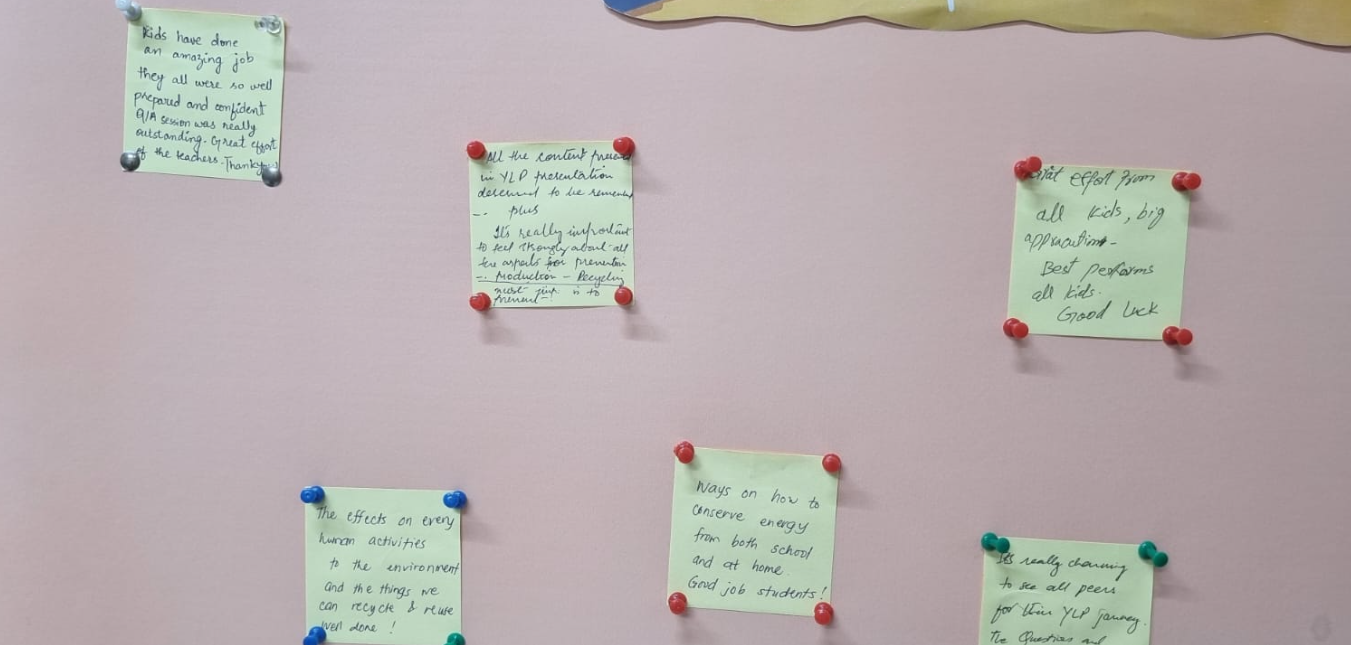 Kids have done
an amazing job
they all were so well
prepared and confident
Q/A session was really
outstanding. Great effort
of the teachers. Thank
All the content
in YLP presentation
to be
-. plus
It's really important
to feel strongly about all
the aspects for prevention
-. Production - Recycling
is to
effort from
all kids, big
Best performs
all kids.
Good Luck
The effects on every
human activities
to the environment
and the things we
can recycle & reuse
well done !
Ways on how to
conserve energy
from both school
and at home.
Good job students!
It's really charming
to see all peers
for their YLP journey.
The Question and